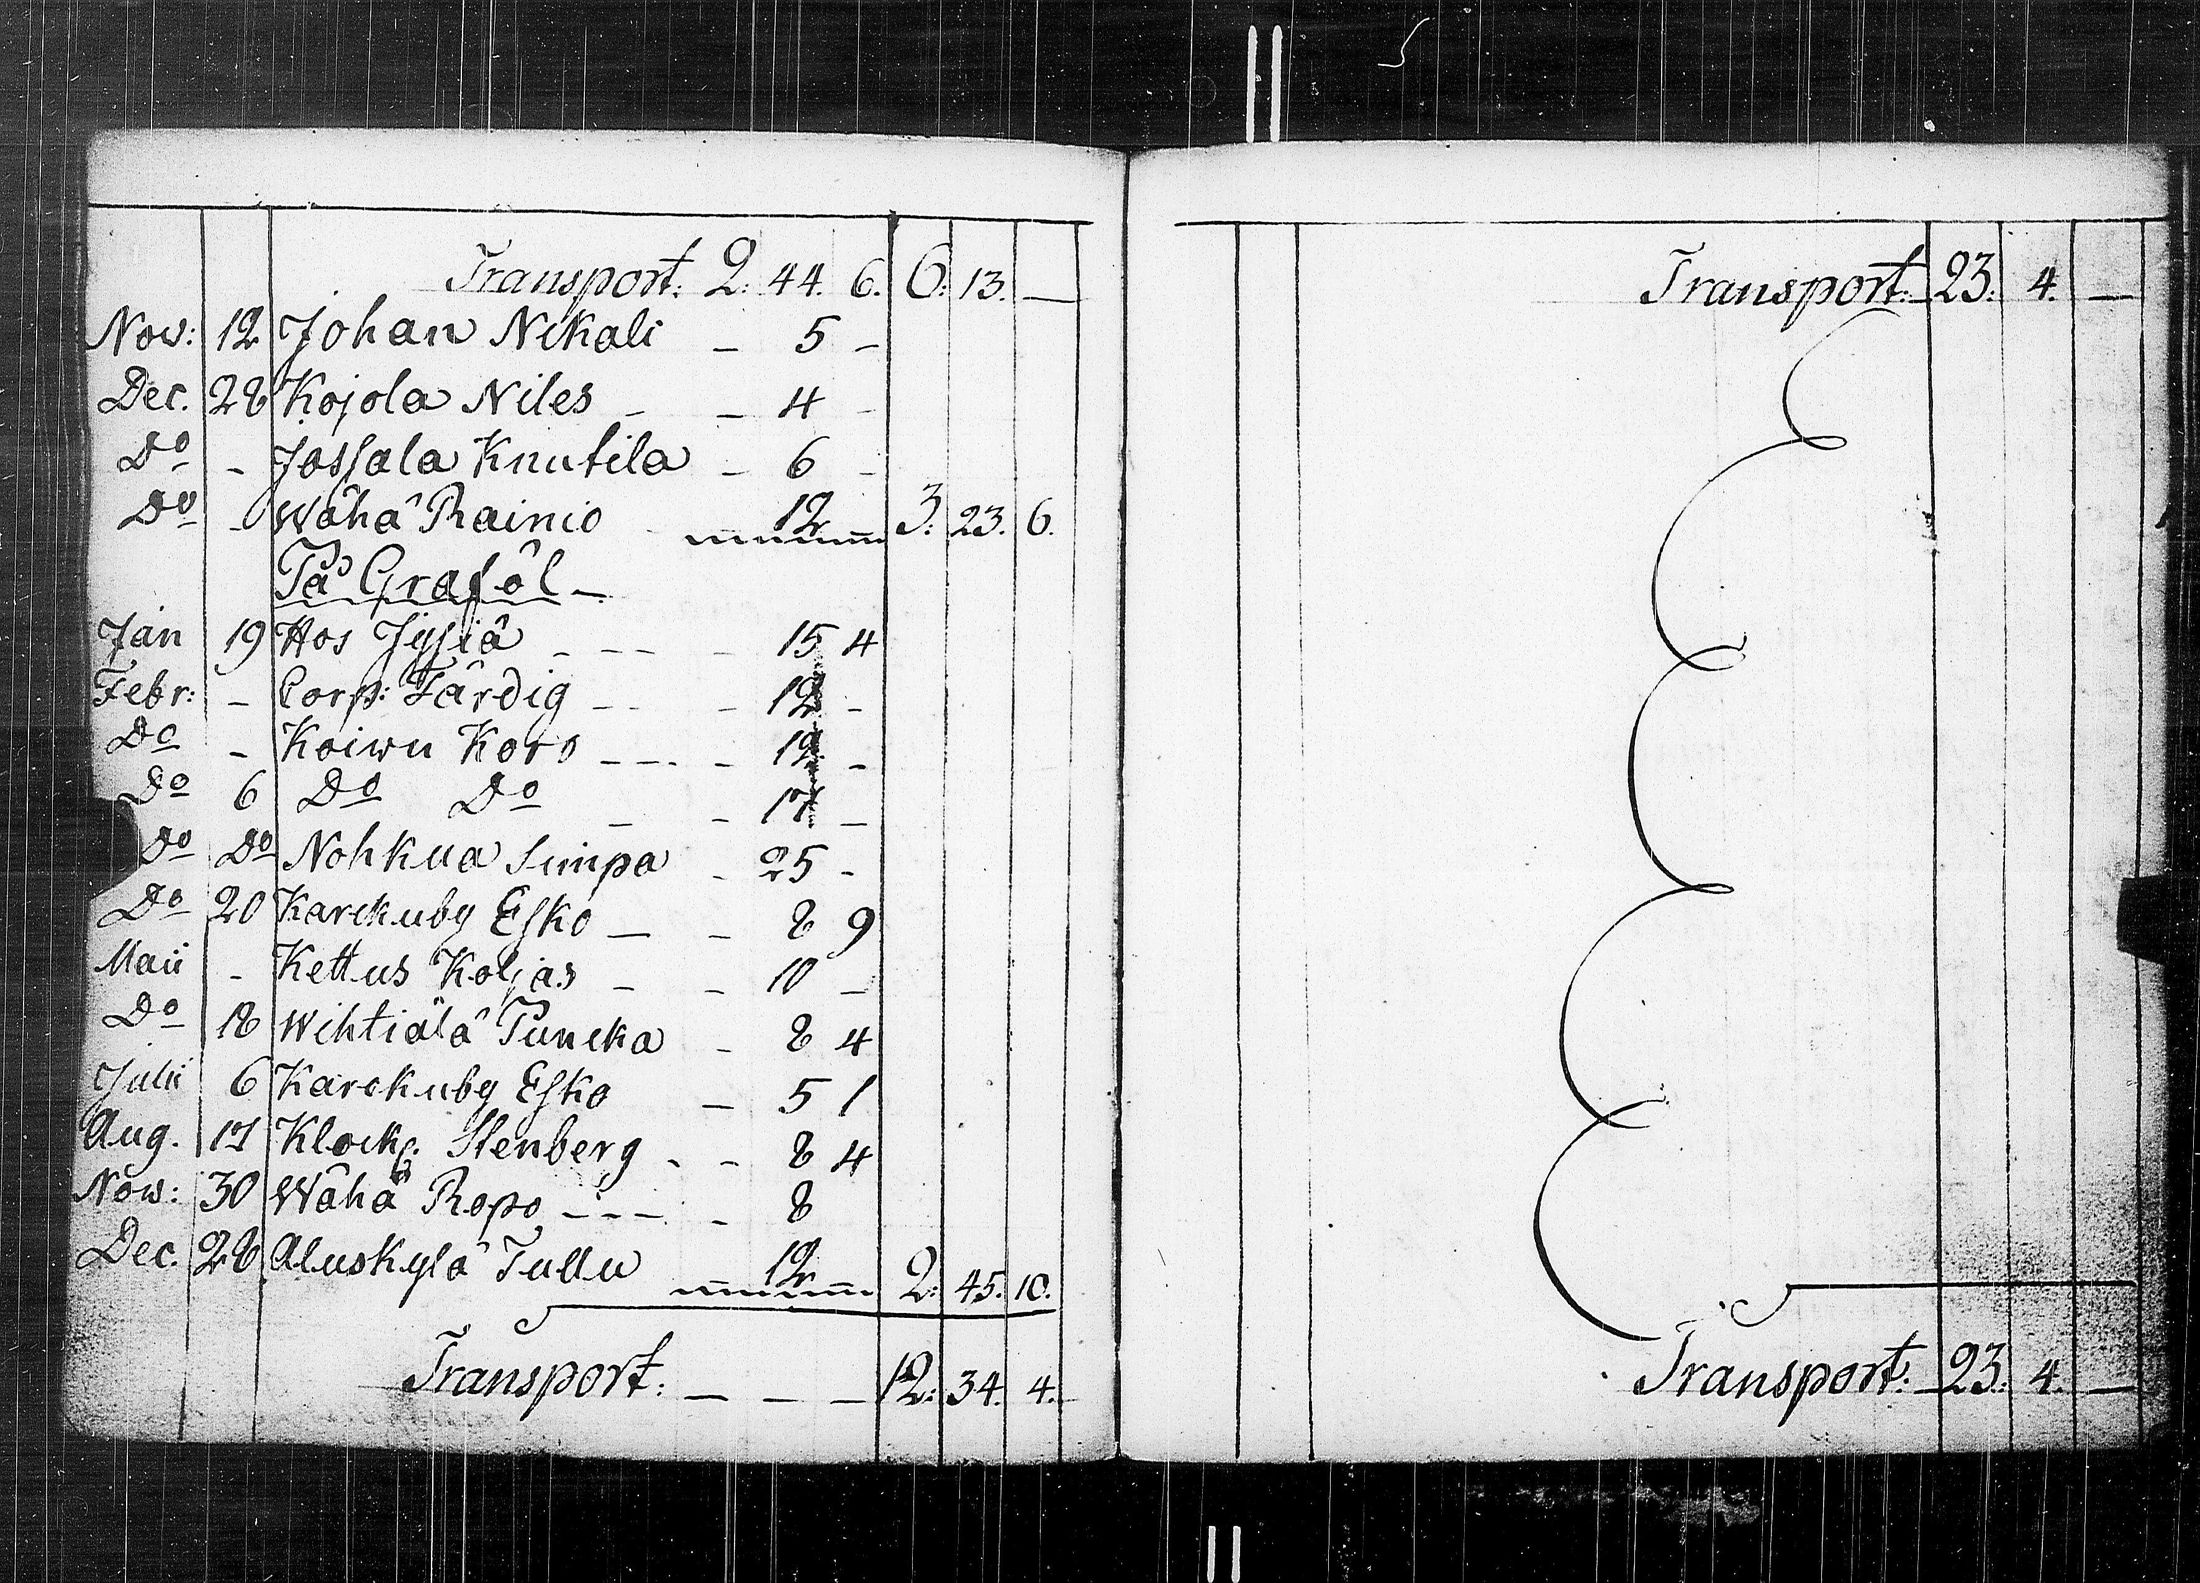 Transport: 2: 44. 6. 6: 13. —
Nov: 12 Johan Nikali — 5 —
Dec. 28 Kojola Niles — — 4 —
Do - Jossala Knutila — 6 —
Do - Wähä Rainio 12 3: 23. 6.
På Graföl —
Jan 19 Hos Jysiä - - - - 15 4
Febr: - Corp: Färdig - - - 12 -
Do - Koiwu Koro - - - - 12 -
Do 6 Do Do - - 17 -
Do Do Nohkua Simpa - 25 -
Do 20 Karckuby Esko — - 8 9
Maii - Kettus Koljas - - 10 -
Do 18 Wihtiälä Puncka - 8 4
Julii 6 Karckuby Esko — 5 1
Aug. 17 Klock: Stenberg - - 8 4
Now: 30 Wähä Ropo - - - - 8
Dec. 28 Aluskylä Tullu 12 2: 45. 10.
Transport: — — — 12: 34. 4.
Transport: 23: 4. —
Transport: 23: 4. —